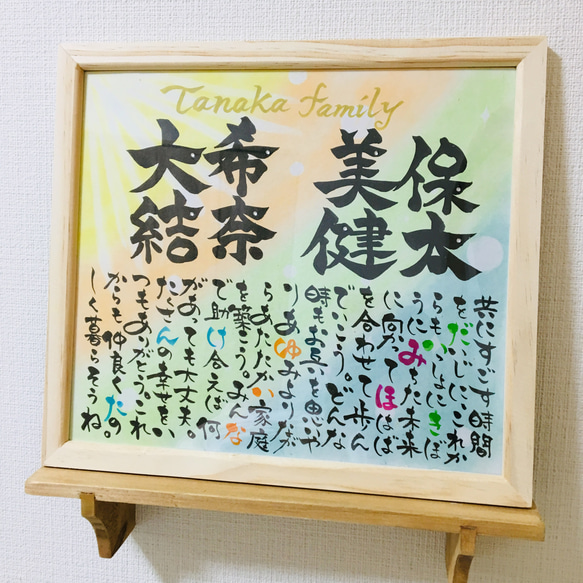 Tanaka family
大希 美保
結奈 健太
共にすごす時間
をだいじに、これか
らもいっしょに。きぼ
うにみちた未来
に向ってほはば
を合わせて歩ん
でいこう。どんな
時もお互いを思いや
りあゆみよりなが
らあたたかい家庭
を築こう。みんな
で助け合えば何
があっても大丈夫。
たくさんの幸せをい
つもありがとう。これ
からも仲良くたの
しく暮らそうね。